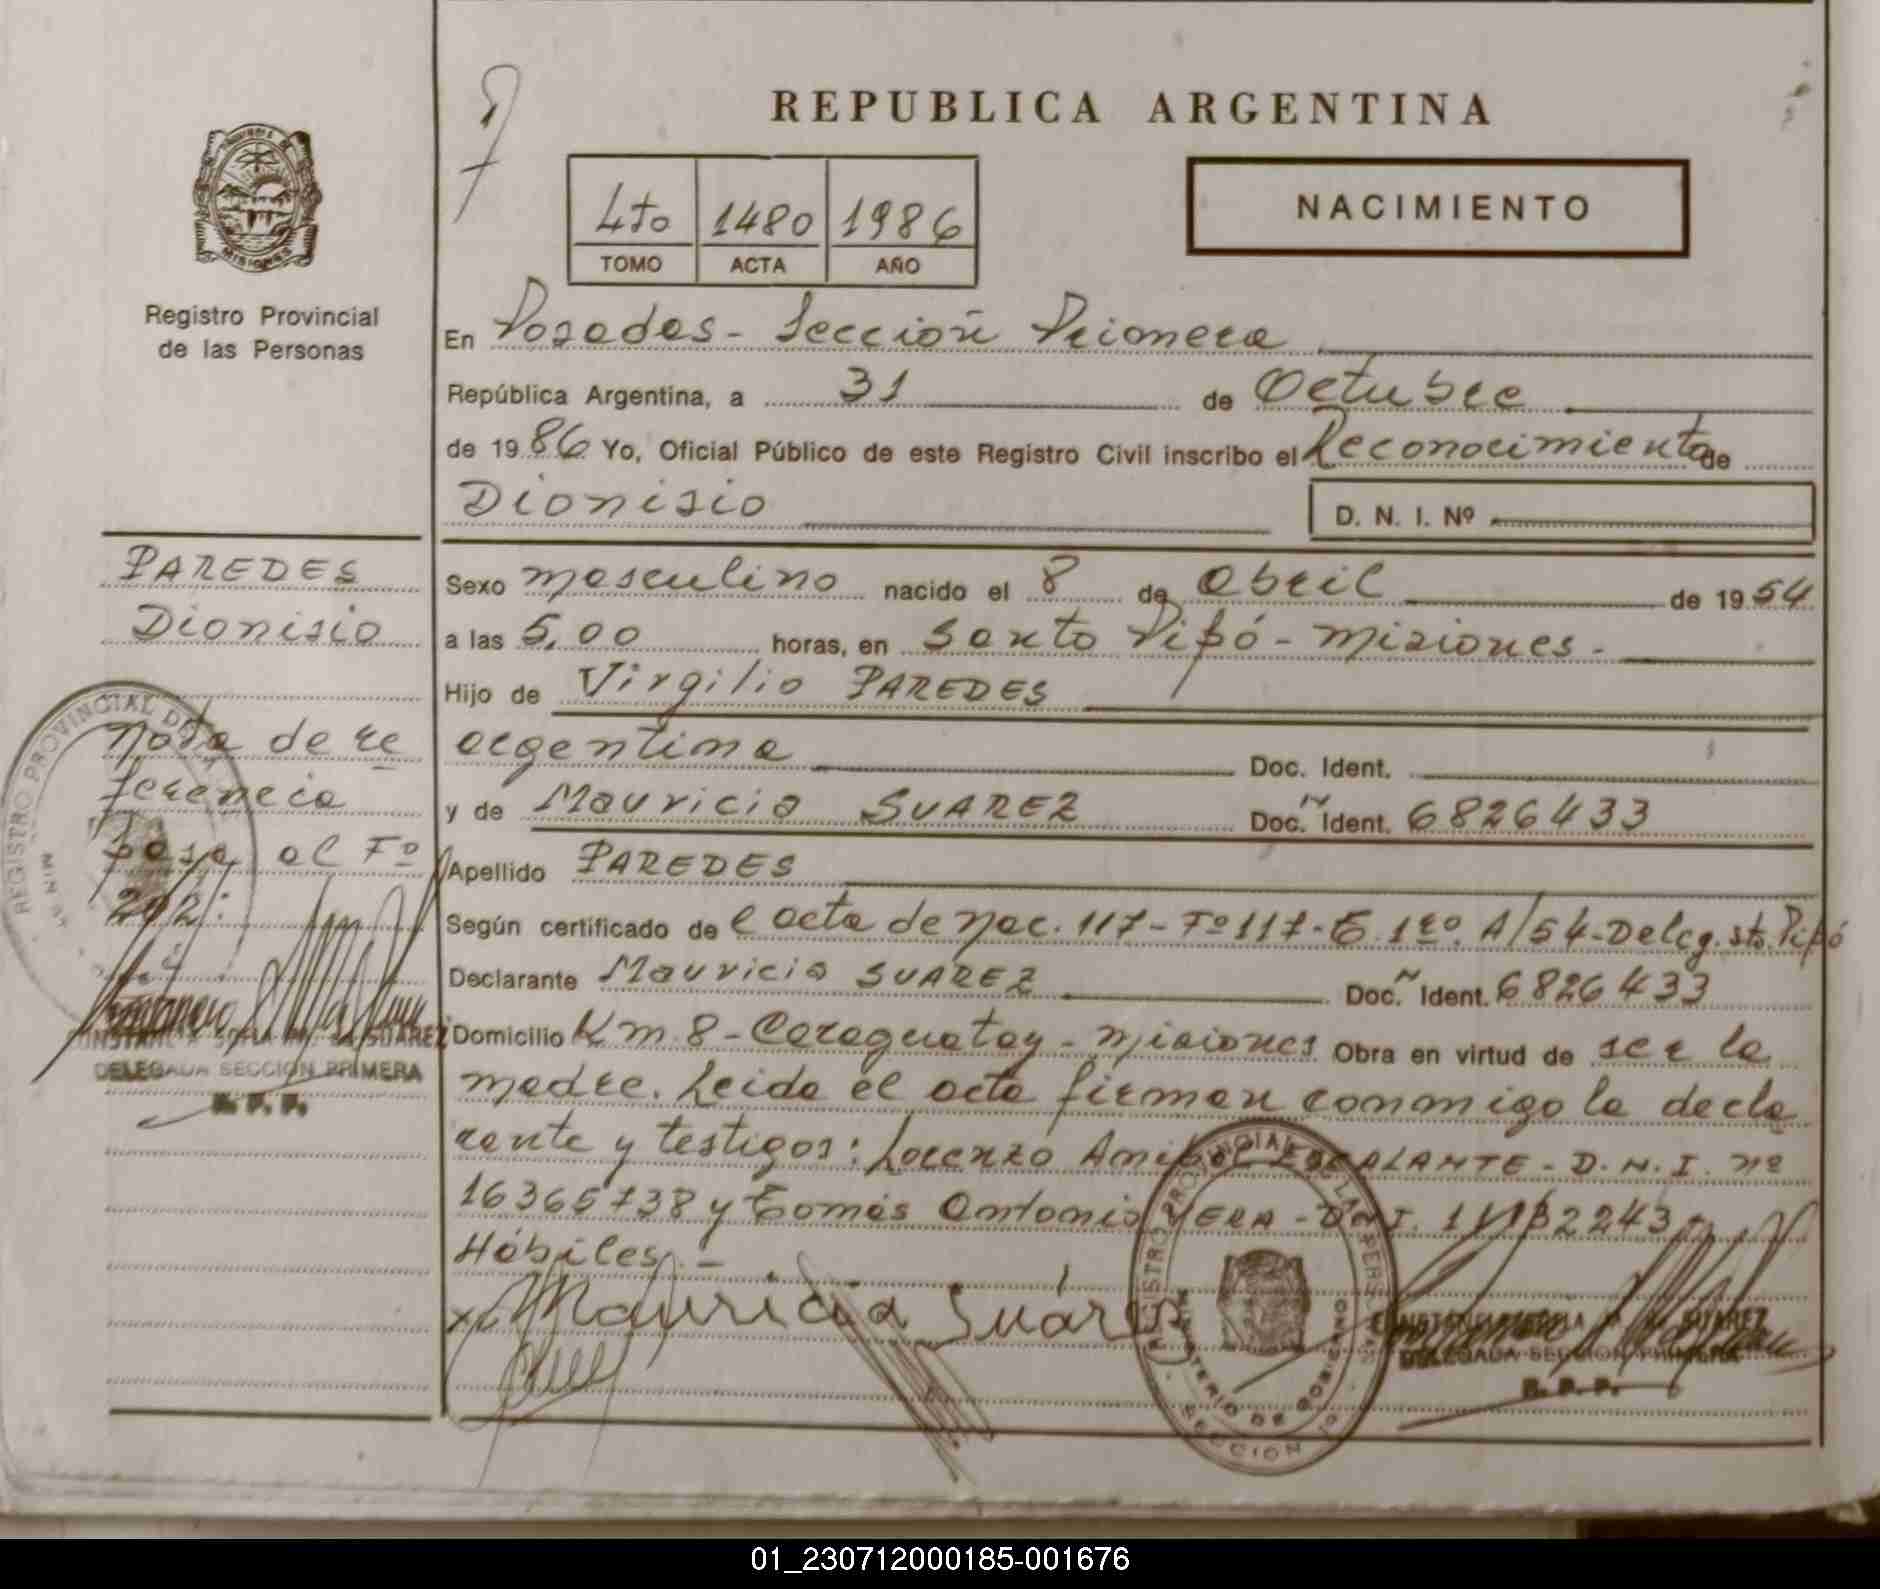 REPUBLICA ARGENTINA
4to 1480 1986
TOMO ACTA AÑO
NACIMIENTO
MISIONES
Registro Provincial
de las Personas
En Posadas - Sección Primera
República Argentina, a 31 de Octubre
de 1986 Yo, Oficial Público de este Registro Civil inscribo el Reconocimiento de
Dionisio
D. N. I. Nº
PAREDES
Dionisio
Sexo masculino nacido el 8 de abril de 1954
a las 5,00 horas, en Santo Pipó - Misiones -
Hijo de Virgilio PAREDES
argentina Doc. Ident.
y de Mauricia SUAREZ Doc. Ident. 6826433
Apellido PAREDES
Según certificado de l acta de Nac. 117 - Fº 117 - T. 1ro. A/54 - Deleg. Sto. Pipó
Declarante Mauricia SUAREZ Doc. Ident. 6826433
Domicilio Km. 8 - Caraguatay - Misiones Obra en virtud de ser la
madre. Leida el acta firman conmigo la decla
rante y testigos: Lorenzo Anibal ESCALANTE - D.N.I. nº
16365738 y Tomás Antonio VERA - D.N.I.
Hábiles. -
Mauricia Suárez
Nota de re
ferencia
pasa al Fº
REGISTRO PROVINCIAL DE
SUAREZ
DELEGADA SECCION PRIMERA
R. P. P.
REGISTRO PROVINCIAL DE LAS PERSONAS
MINISTERIO DE GOBIERNO
SECCION 1º
SUAREZ
DELEGADA SECCION PRIMERA
R. P. P.
01_230712000185-001676